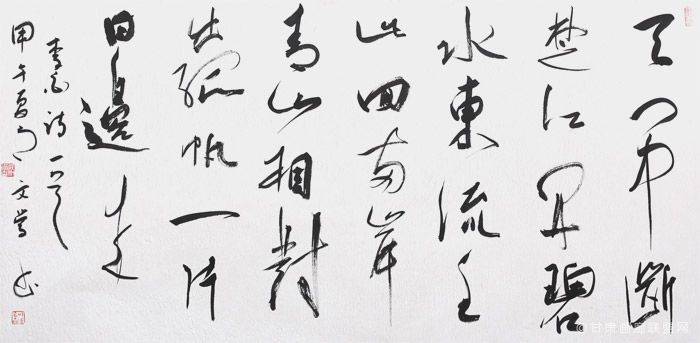 天门中断
楚江开碧
水東流至
此回两岸
青山相對
出孤帆一片
日邊来
李白诗一首
甲午夏月文
书
甘肃画廊联盟网